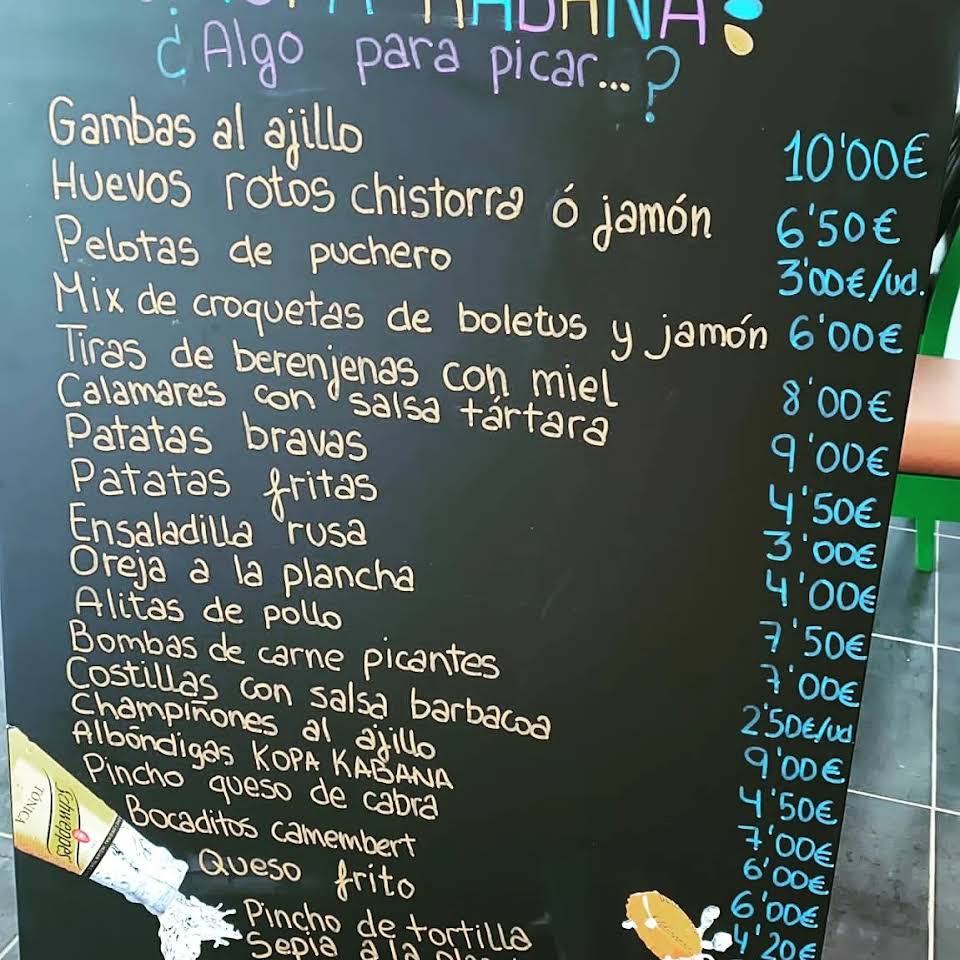 KABANA!
¿Algo para picar...?
Gambas al ajillo 10'00€
Huevos rotos chistorra ó jamón 6'50€
Pelotas de puchero 3'00€/ud.
Mix de croquetas de boletus y jamón 6'00€
Tiras de berenjenas con miel 8'00€
Calamares con salsa tártara 9'00€
Patatas bravas 4'50€
Patatas fritas 3'00€
Ensaladilla rusa 4'00€
Oreja a la plancha 7'50€
Alitas de pollo 7'00€
Bombas de carne picantes 2'50€/ud.
Costillas con salsa barbacoa 9'00€
Champiñones al ajillo 4'50€
Albóndigas KOPA KABANA 7'00€
Pincho queso de cabra 6'00€
Bocaditos camembert 6'00€
Queso frito 4'20€
Pincho de tortilla
Sepia a la
Schweppes
TONICA